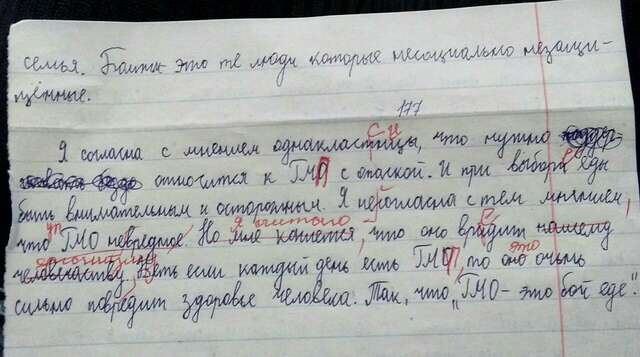 семья. Бомжи это те люди которые несоциально незащи-
щённые.
177
Я согласна с мнением однакластницы, что нужно
относится к ГМО с опаской. И при выбора еды
быть внимательным и осторожным. Я несогласна с тем мнением,
что ГМО невредное. Но мне кажется, что оно вредит нашему
человечаству. Ведь если каждый день есть ГМО, то оно очень
сильно повредит здоровье человека. Так, что „ГМО - это бой еде".